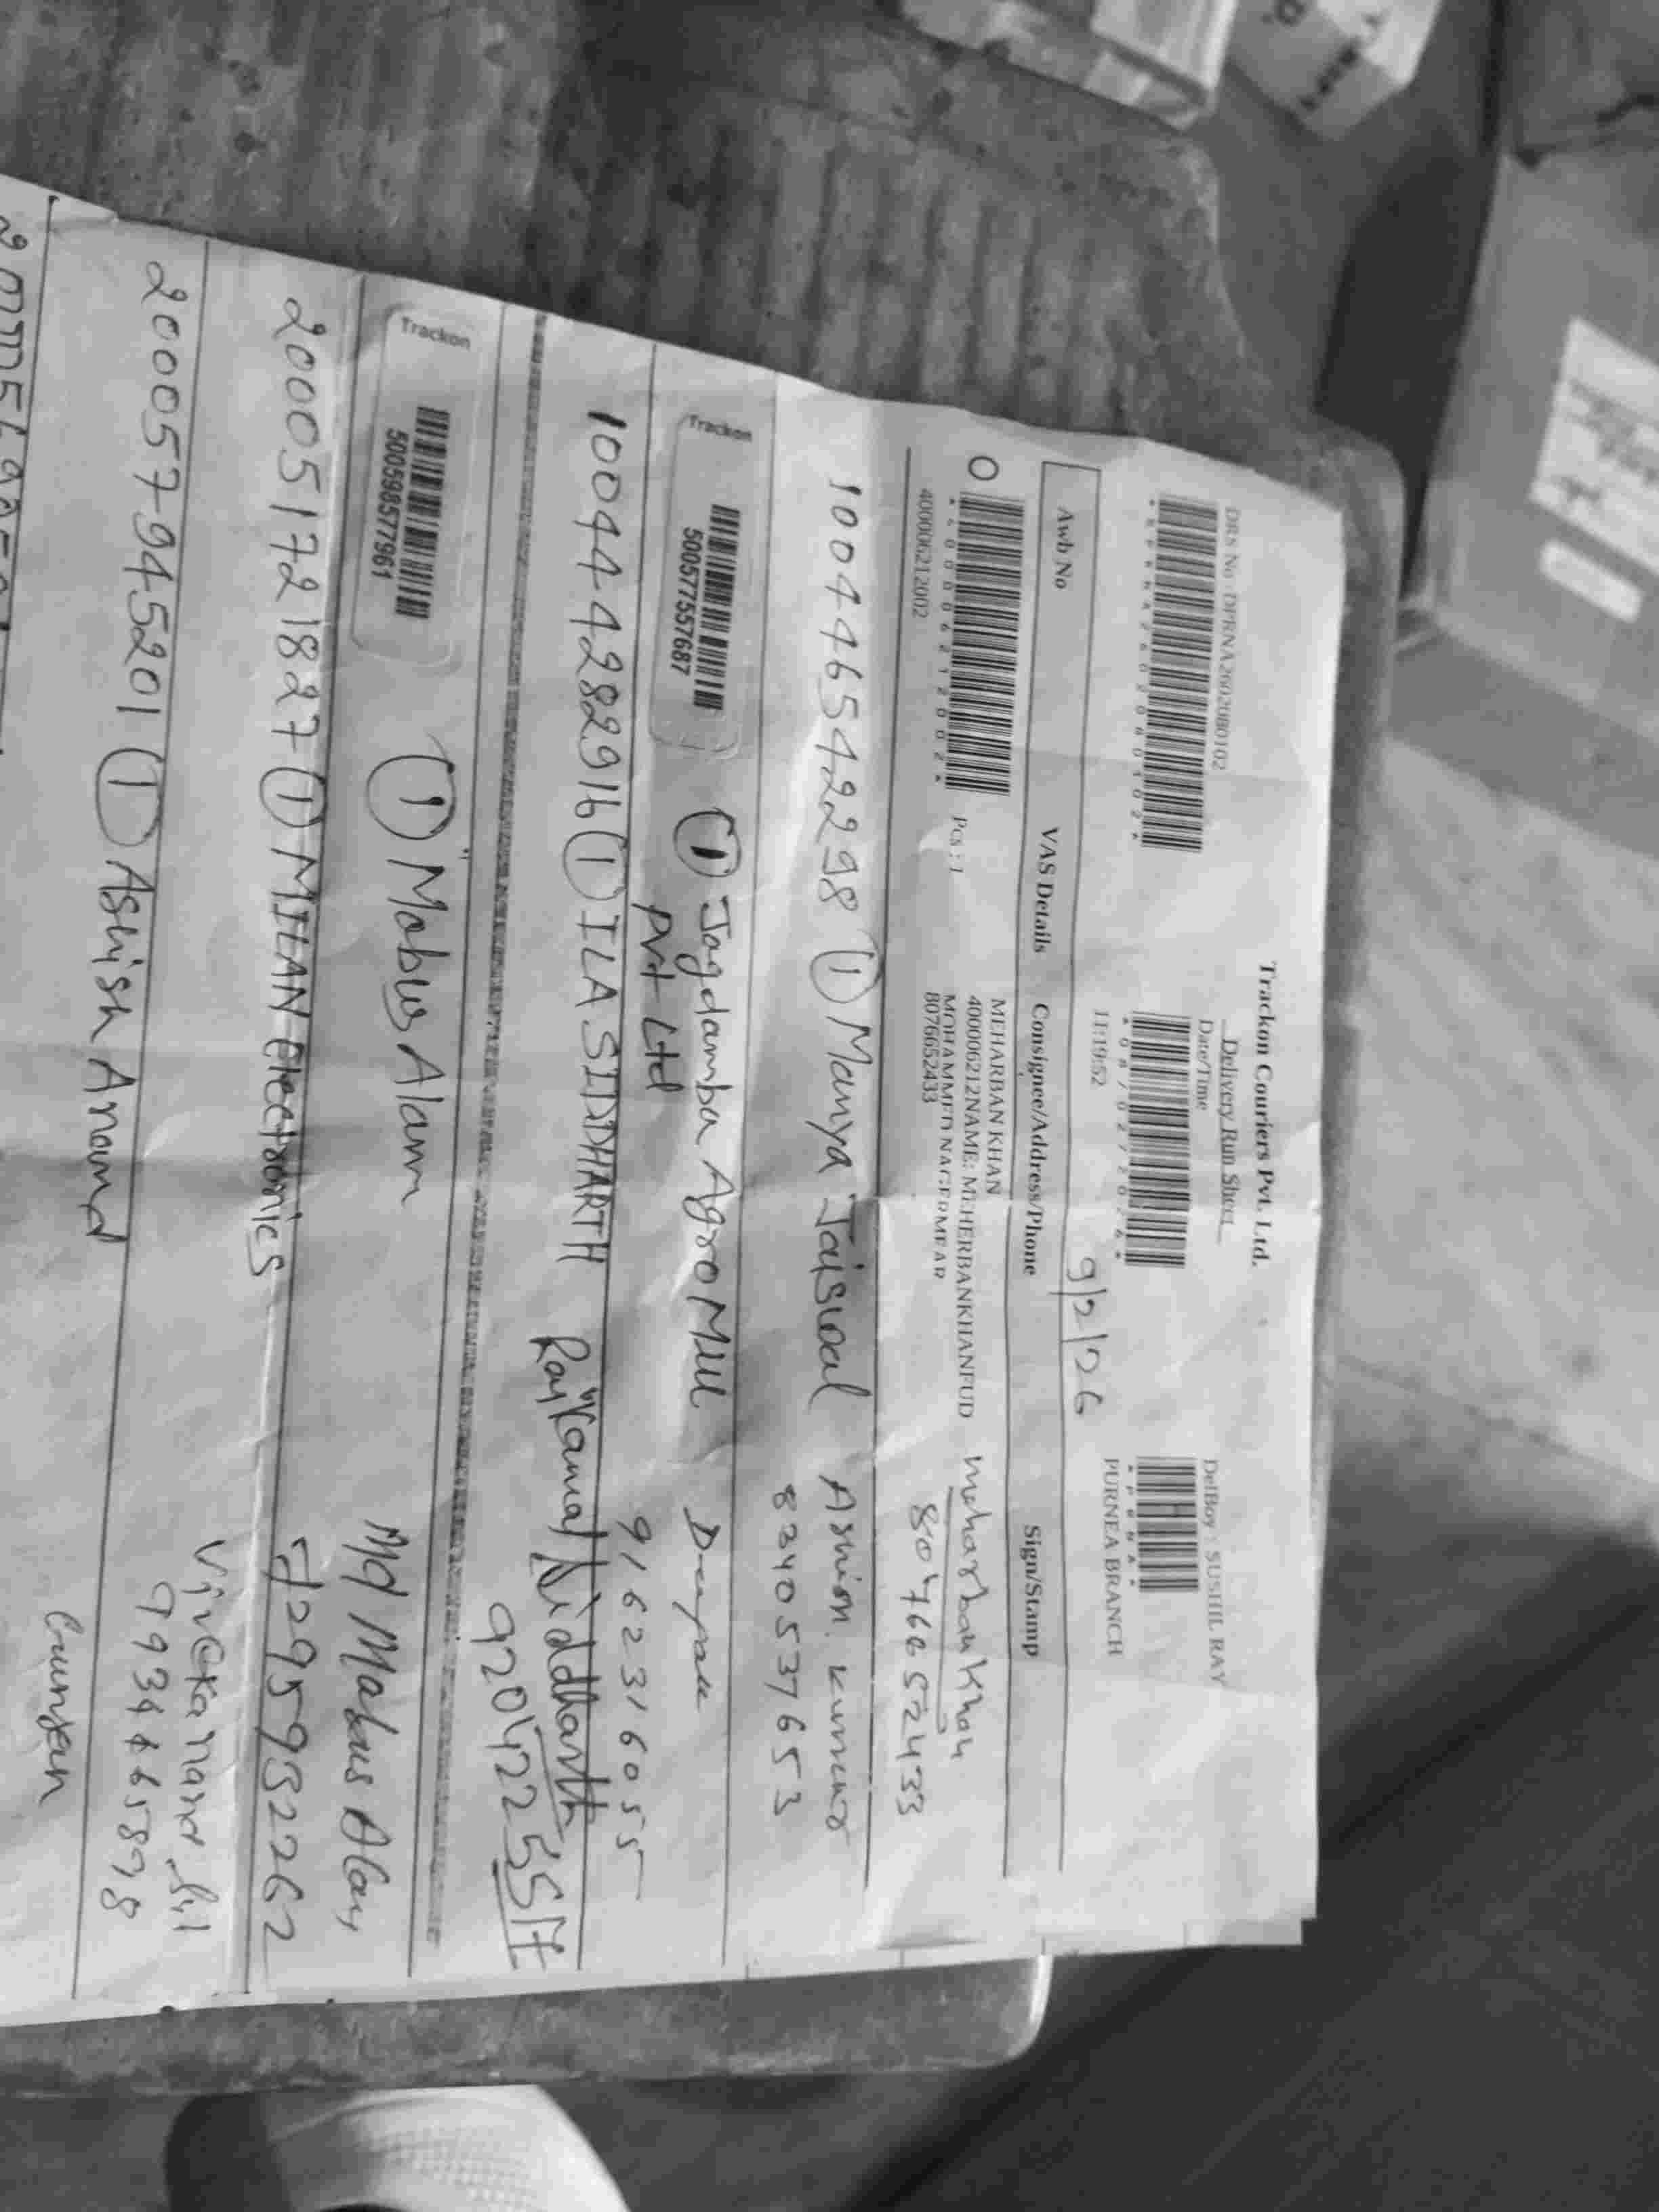 Trackon Couriers Pvt. Ltd.
Delivery Run Sheet
DRS No : DPRNA2602080102
Date/Time
DelBoy : SUSHIL RAY
11:19:52
9/2/26
PURNEA BRANCH
Awb No VAS Details Consignee/Address/Phone Sign/Stamp
MEHARBAN KHAN
400006212NAME: MEHERBANKHANFUD
MOHAMMED NAGERMEAR
8076652433
Pcs : 1
400006212002
Meharban Khan
8076652433
100446542298 (1) Manya Jaiswal Ashish kumar
8340537653
Trackon
500577557687
(1) Jagdamba Agro Mill
Pvt Ltd
Deepak
9162316055
100444282916 (1) ILA SIDDHARTH Rajkamal Siddharth
9204222551
Trackon
500598577961
(1) Mobus Alam
Md Mabus Alam
7295932262
200051721827 (1) MILAN Electronics
200057945201 (1) Ashish Anand
Gunjan